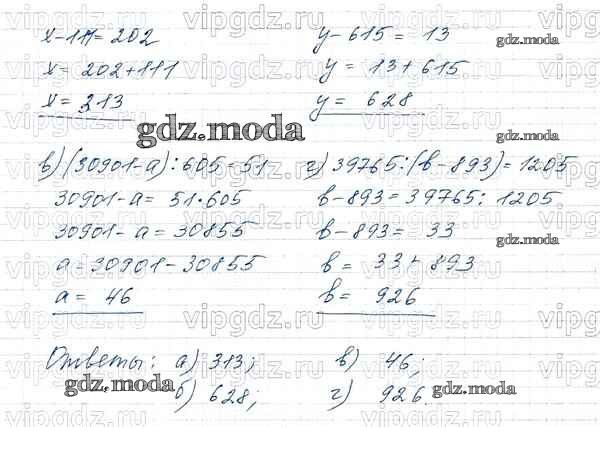 x-111=202
x= 202+111
x= 313
y-615= 13
y= 13+615
y= 628
gdz.moda
gdz.moda
в) (30901-a):605=51
30901-a= 51·605
30901-a= 30855
a=30901-30855
a= 46
г) 39765:(b-893)=1205
b-893=39765:1205
b-893= 33
b= 33+893
b= 926
gdz.moda
Ответы: а) 313; в) 46;
б) 628; г) 926.
gdz.moda
gdz.moda
vipgdz.ru